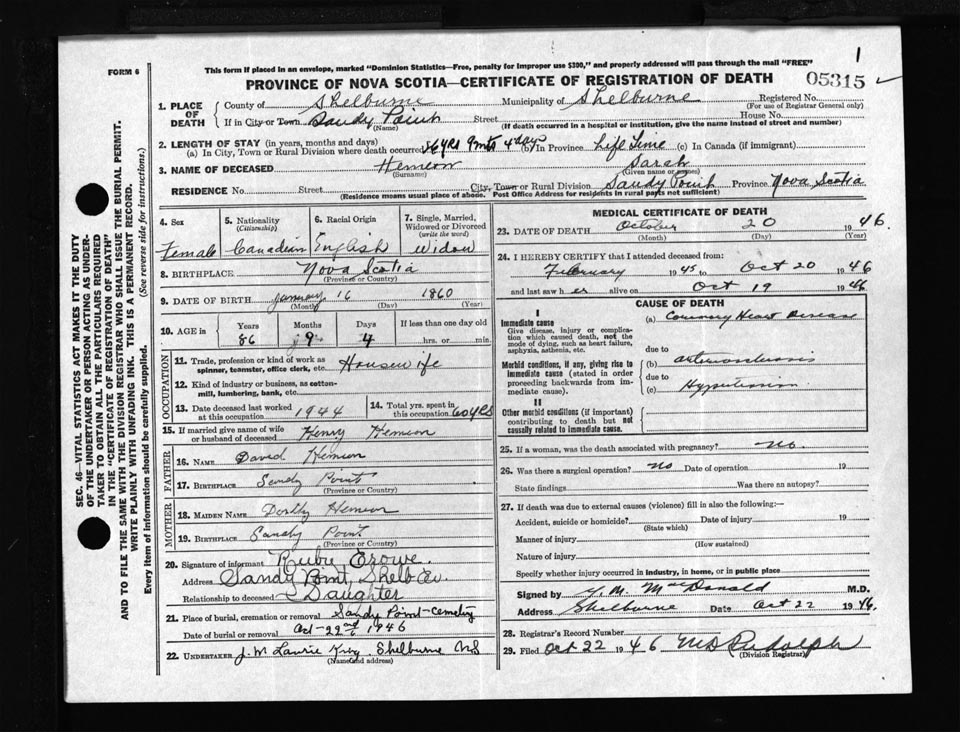 1
FORM 6
This form if placed in an envelope, marked "Dominion Statistics—Free, penalty for improper use $300," and properly addressed will pass through the mail "FREE"
PROVINCE OF NOVA SCOTIA—CERTIFICATE OF REGISTRATION OF DEATH
05315
1. PLACE OF DEATH County of Shelburne Municipality of Shelburne Registered No.
(For use of Registrar General only)
If in City or Town Sandy Point Street House No.
(Name) (If death occurred in a hospital or institution, give the name instead of street and number)
2. LENGTH OF STAY (in years, months and days)
(a) In City, Town or Rural Division where death occurred 86 yrs 9 mts 4 days (b) In Province Life Time (c) In Canada (if immigrant)
3. NAME OF DECEASED Hemeon Sarah
(Surname) (Given name or names)
RESIDENCE No. Street City, Town or Rural Division Sandy Point Province Nova Scotia
(Residence means usual place of abode. Post Office Address for residents in rural parts not sufficient)
4. Sex Female
5. Nationality (Citizenship) Canadian
6. Racial Origin English
7. Single, Married, Widowed or Divorced (write the word) Widow
8. BIRTHPLACE Nova Scotia
(Province or Country)
9. DATE OF BIRTH January 16 1860
(Month) (Day) (Year)
10. AGE in Years Months Days If less than one day old
86 9 4 hrs. or min.
OCCUPATION
11. Trade, profession or kind of work as spinner, teamster, office clerk, etc. Housewife
12. Kind of industry or business, as cotton-mill, lumbering, bank, etc.
13. Date deceased last worked at this occupation 1944
14. Total yrs. spent in this occupation 60 yrs
15. If married give name of wife or husband of deceased Henry Hemeon
FATHER
16. NAME David Hemeon
17. BIRTHPLACE Sandy Point
(Province or Country)
MOTHER
18. MAIDEN NAME Hemeon
19. BIRTHPLACE Sandy Point
(Province or Country)
20. Signature of informant Ruby Crowe
Address Sandy Point, Shelb Co.
Relationship to deceased Daughter
21. Place of burial, cremation or removal Sandy Point-Cemetery
Date of burial or removal Oct-22nd 1946
22. UNDERTAKER J. M Laurie Shelburne NS
(Name and address)
MEDICAL CERTIFICATE OF DEATH
23. DATE OF DEATH October 20 1946.
(Month) (Day) (Year)
24. I HEREBY CERTIFY that I attended deceased from:
February 1945 to Oct 20 1946
and last saw her alive on Oct 19 1946
CAUSE OF DEATH
I
Immediate cause
Give disease, injury or complication which caused death, not the mode of dying, such as heart failure, asphyxia, asthenia, etc.
(a) Coronary Heart Disease
due to
Morbid conditions, if any, giving rise to immediate cause (stated in order proceeding backwards from immediate cause).
(b) Arteriosclerosis
due to
(c) Hypertension
II
Other morbid conditions (if important) contributing to death but not causally related to immediate cause.
25. If a woman, was the death associated with pregnancy? No.
26. Was there a surgical operation? No Date of operation 19
State findings Was there an autopsy?
27. If death was due to external causes (violence) fill in also the following:—
Accident, suicide or homicide? Date of injury 19
(State which)
Manner of injury
(How sustained)
Nature of injury
Specify whether injury occurred in industry, in home, or in public place
Signed by MacDonald M.D.
Address Shelburne Date Oct 22 1946.
28. Registrar's Record Number
29. Filed Oct 22 1946 MD Rudolph
(Division Registrar)
SEC. 46—VITAL STATISTICS ACT MAKES IT THE DUTY
OF THE UNDERTAKER OR PERSON ACTING AS UNDER-
TAKER TO OBTAIN ALL THE PARTICULARS REQUIRED
IN THE "CERTIFICATE OF REGISTRATION OF DEATH"
AND TO FILE THE SAME WITH THE DIVISION REGISTRAR WHO SHALL ISSUE THE BURIAL PERMIT.
WRITE PLAINLY WITH UNFADING INK. THIS IS A PERMANENT RECORD.
Every item of information should be carefully supplied. (See reverse side for instructions.)